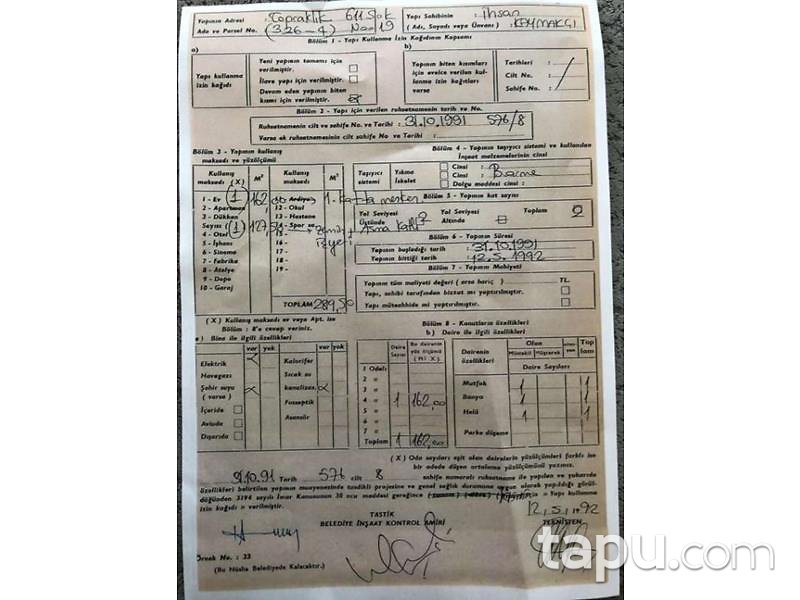 Yapının Adresi : Topraklık 611 Sok
Yapı Sahibinin : İhsan
Ada ve Parsel No. (326-4) No=19
( Adı, Soyadı veya Ünvanı ) KAYMAKÇI
Bölüm 1 - Yapı Kullanma İzin Kağıdının Kapsamı
a)
b)
Yapı kullanma izin kağıdı
Yeni yapının tamamı için verilmiştir.
İlave yapı için verilmiştir.
Devam eden yapının biten kısmı için verilmiştir.
Yapının biten kısımları için evvelce verilen kullanma izin kağıtları varsa
Tarihleri :
Cilt No. :
Sahife No. :
Bölüm 2 - Yapı için verilen ruhsatnamenin tarih ve No.
Ruhsatnamenin cilt ve sahife No. ve Tarihi : 31.10.1991 576/8
Varsa ek ruhsatnamesinin cilt sahife No ve Tarihi :
Bölüm 3 - Yapının kullanış maksadı ve yüzölçümü
Bölüm 4 - Yapının taşıyıcı sistemi ve kullanılan İnşaat malzemelerinin cinsi
Kullanış maksadı ( X ) M²
Kullanış maksadı M²
Taşıyıcı sistemi
Yıkma
İskelet
Cinsi :
Cinsi :
Dolgu maddesi cinsi :
1 - Ev 1 162,00
2 - Apartman
3 - Dükkan
Sayısı (1) 127,50
4 - Otel
5 - İşhanı
6 - Sinema
7 - Fabrika
8 - Atelye
9 - Depo
10 - Garaj
12 - Okul
13 - Hastane
14 - Spor sa
15 -
16 -
17 -
18 -
19 -
TOPLAM 289,50
Bölüm 5 - Yapının kat sayısı
Yol Seviyesi Üstünde 2
Yol Seviyesi Altında
Toplam 2
Bölüm 6 - Yapının Süresi
Yapının başladığı tarih : 31.10.1991
Yapının bittiği tarih : 12.5.1992
Bölüm 7 - Yapının Mahiyeti
Yapının tüm maliyeti değeri ( arsa hariç ) TL
Yapı, sahibi tarafından bizzat mı yaptırılmıştır.
Yapı müteahhide mi yaptırılmıştır.
( X ) Kullanış maksadı ev veya Apt. ise
Bölüm : 8'e cevap veriniz.
Bölüm 8 - Konutların özellikleri
a ) Bina ile ilgili özellikleri
b ) Daire ile ilgili özellikleri
var yok
var yok
Elektrik
Havagazı
Şehir suyu ( varsa )
İçeride
Avluda
Dışarıda
Kalorifer
Sıcak su
kanalizas.
Fosseptik
Asansör
Daire Sayısı
Bu dairenin yüz ölçümü (M² X)
1 Odalı
2 »
3 »
4 » 1 162,00
5 »
6 »
7 »
Toplam 1 162,00
Dairenin özellikleri
Olan
Müstakil Müşterek
Toplam
Daire Sayıları
Mutfak 1 1
Banyo 1 1
Helâ 1 1
Parke döşeme
( X ) Oda sayıları eşit olan dairelerin yüzölçümleri farklı ise bir adede düşen ortalama yüzölçümünü yazınız.
31.10.91 Tarih 576 cilt 8 sahife numaralı ruhsatname ile yapılan ve yukarıda
özellikleri belirtilen yapının muayenesinde tasdikli projesine ve genel sağlık durumuna uygun olarak yapıldığı görül-
düğünden 3194 sayılı İmar Kanununun 30 ncu maddesi gereğince
Yapı kullanma
izin kağıdı » verilmiştir.
12.5.1992
TASTİK
BELEDİYE İNŞAAT KONTROL AMİRİ
TEKNİSYEN
Örnek No. : 33
(Bu Nüsha Belediyede Kalacaktır.)
tapu.com